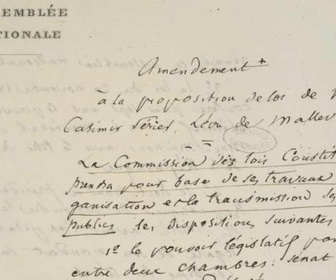 SEMBLÉE
TIONALE
Amendement +
à la proposition de loi de
Casimir Périer, Léon de Mallev
La Commission des lois Constit
prendra pour base de ses travaux
ganisation et la transmission de
publics les dispositions suivantes
1° le pouvoir législatif
entre deux chambres : Sénat